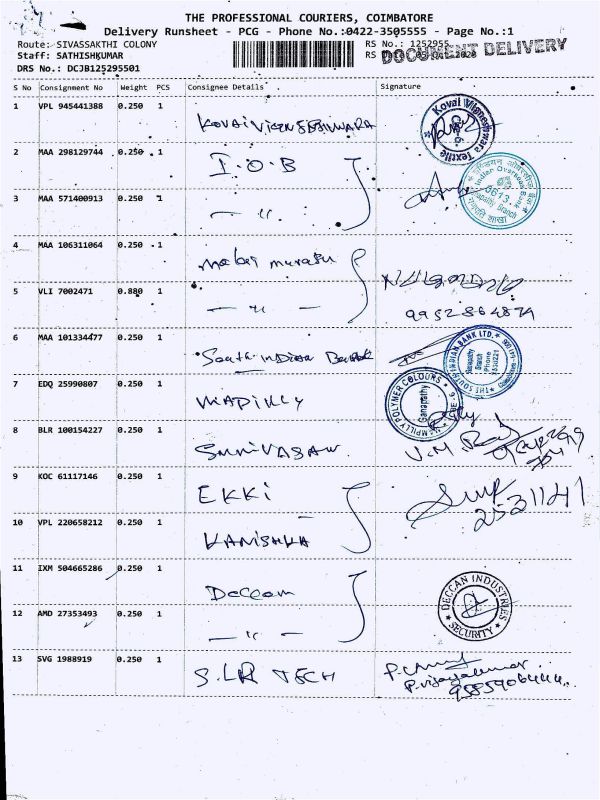 THE PROFESSIONAL COURIERS, COIMBATORE
Delivery Runsheet - PCG - Phone No.:0422-3505555 - Page No.:1
Route: SIVASSAKTHI COLONY
RS No.: 1252955
Staff: SATHISHKUMAR
RS
DOCUMENT DELIVERY
DRS No.: DCJB125295501
S No Consignment No Weight PCS Consignee Details Signature
1 VPL 945441388 0.250 1
Kovai Vigneshwara Textile
2 MAA 298129744 0.250 1 I.O.B
3 MAA 571400913 0.250 1 — " —
Indian Overseas Bank
0613
Ganapathy Branch
4 MAA 106311064 0.250 1
5 VLI 7002471 0.880 1 — " —
9952864879
6 MAA 101334477 0.250 1 South Indian Bank
THE SOUTH INDIAN BANK LTD.
Ganapathy
Branch
Phone
7 EDQ 25990807 0.250 1
MAMPILLY POLYMER COLOURS
Ganapathy
8 BLR 100154227 0.250 1 SRINIVASAN
9 KOC 61117146 0.250 1 EKKI
2531141
10 VPL 220658212 0.250 1 KANISHKA
11 IXM 504665286 0.250 1 Deccan
DECCAN INDUSTRIES
SECURITY
12 AMD 27353493 0.250 1 — " —
13 SVG 1988919 0.250 1 S.LR TECH
P.Vijayakumar